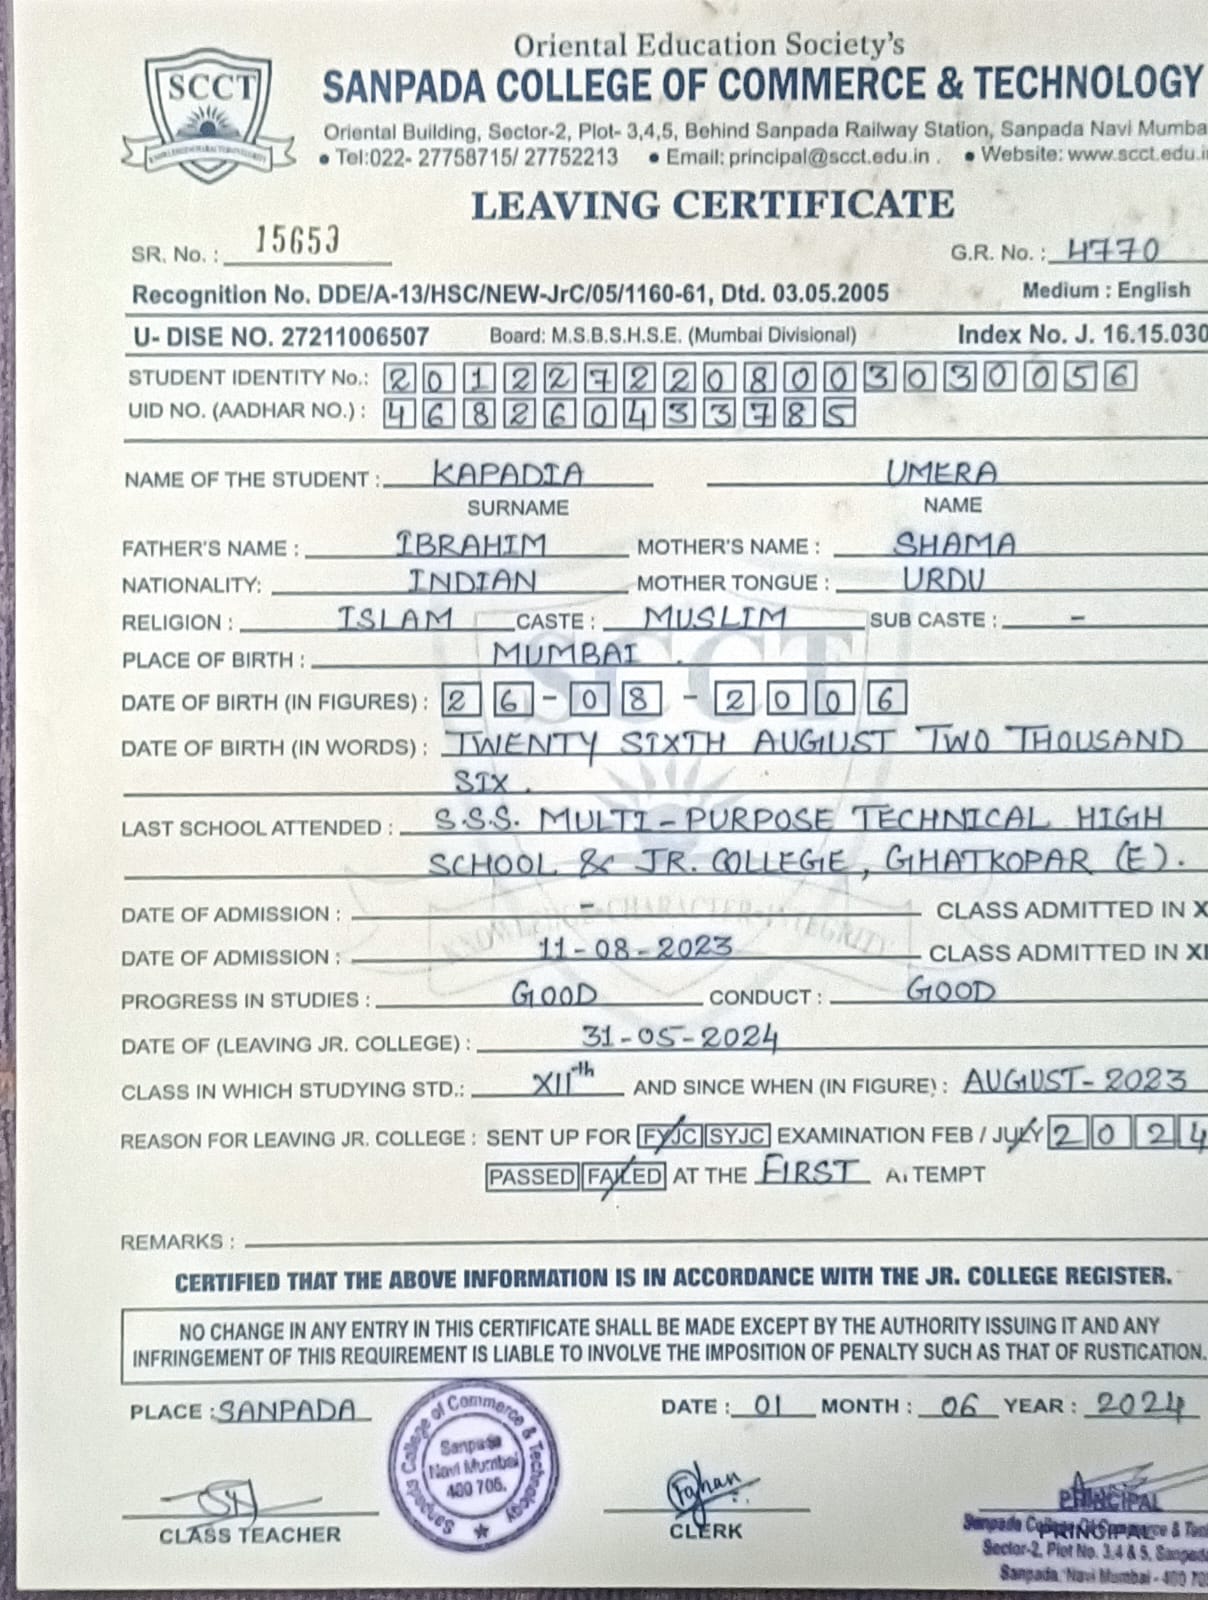 Oriental Education Society's
SCCT
SANPADA COLLEGE OF COMMERCE & TECHNOLOGY
Oriental Building, Sector-2, Plot- 3,4,5, Behind Sanpada Railway Station, Sanpada Navi Mumba
• Tel:022- 27758715/ 27752213 • Email: principal@scct.edu.in . • Website: www.scct.edu.i
LEAVING CERTIFICATE
SR. No. : 15653 G.R. No. : 4770
Recognition No. DDE/A-13/HSC/NEW-JrC/05/1160-61, Dtd. 03.05.2005 Medium : English
U- DISE NO. 27211006507 Board: M.S.B.S.H.S.E. (Mumbai Divisional) Index No. J. 16.15.030
STUDENT IDENTITY No.: 2012272208003030056
UID NO. (AADHAR NO.) : 468260433785
NAME OF THE STUDENT : KAPADIA UMERA
SURNAME NAME
FATHER'S NAME : IBRAHIM MOTHER'S NAME : SHAMA
NATIONALITY: INDIAN MOTHER TONGUE : URDU
RELIGION : ISLAM CASTE : MUSLIM SUB CASTE : -
PLACE OF BIRTH : MUMBAI .
DATE OF BIRTH (IN FIGURES) : 26-08-2006
DATE OF BIRTH (IN WORDS) : TWENTY SIXTH AUGUST TWO THOUSAND
SIX .
LAST SCHOOL ATTENDED : S.S.S. MULTI-PURPOSE TECHNICAL HIGH
SCHOOL & JR. COLLEGE, GHATKOPAR (E).
DATE OF ADMISSION : - CLASS ADMITTED IN X
KNOWLEDGE•CHARACTER•INTEGRITY
DATE OF ADMISSION : 11-08-2023 CLASS ADMITTED IN XI
PROGRESS IN STUDIES : GOOD CONDUCT : GOOD
DATE OF (LEAVING JR. COLLEGE) : 31-05-2024
CLASS IN WHICH STUDYING STD.: XIIth AND SINCE WHEN (IN FIGURE) : AUGUST-2023
REASON FOR LEAVING JR. COLLEGE : SENT UP FOR FYJC SYJC EXAMINATION FEB / JULY 2024
PASSED FAILED AT THE FIRST ATTEMPT
REMARKS :
CERTIFIED THAT THE ABOVE INFORMATION IS IN ACCORDANCE WITH THE JR. COLLEGE REGISTER.
NO CHANGE IN ANY ENTRY IN THIS CERTIFICATE SHALL BE MADE EXCEPT BY THE AUTHORITY ISSUING IT AND ANY
INFRINGEMENT OF THIS REQUIREMENT IS LIABLE TO INVOLVE THE IMPOSITION OF PENALTY SUCH AS THAT OF RUSTICATION.
PLACE : SANPADA DATE : 01 MONTH : 06 YEAR : 2024
Sanpada College of Commerce & Technology
Sanpada
Navi Mumbai
400 705.
CLASS TEACHER CLERK PRINCIPAL
PRINCIPAL
Sanpada College Of Commerce & Tech
Sector-2, Plot No. 3,4 & 5, Sanpada
Sanpada, Navi Mumbai - 400 70